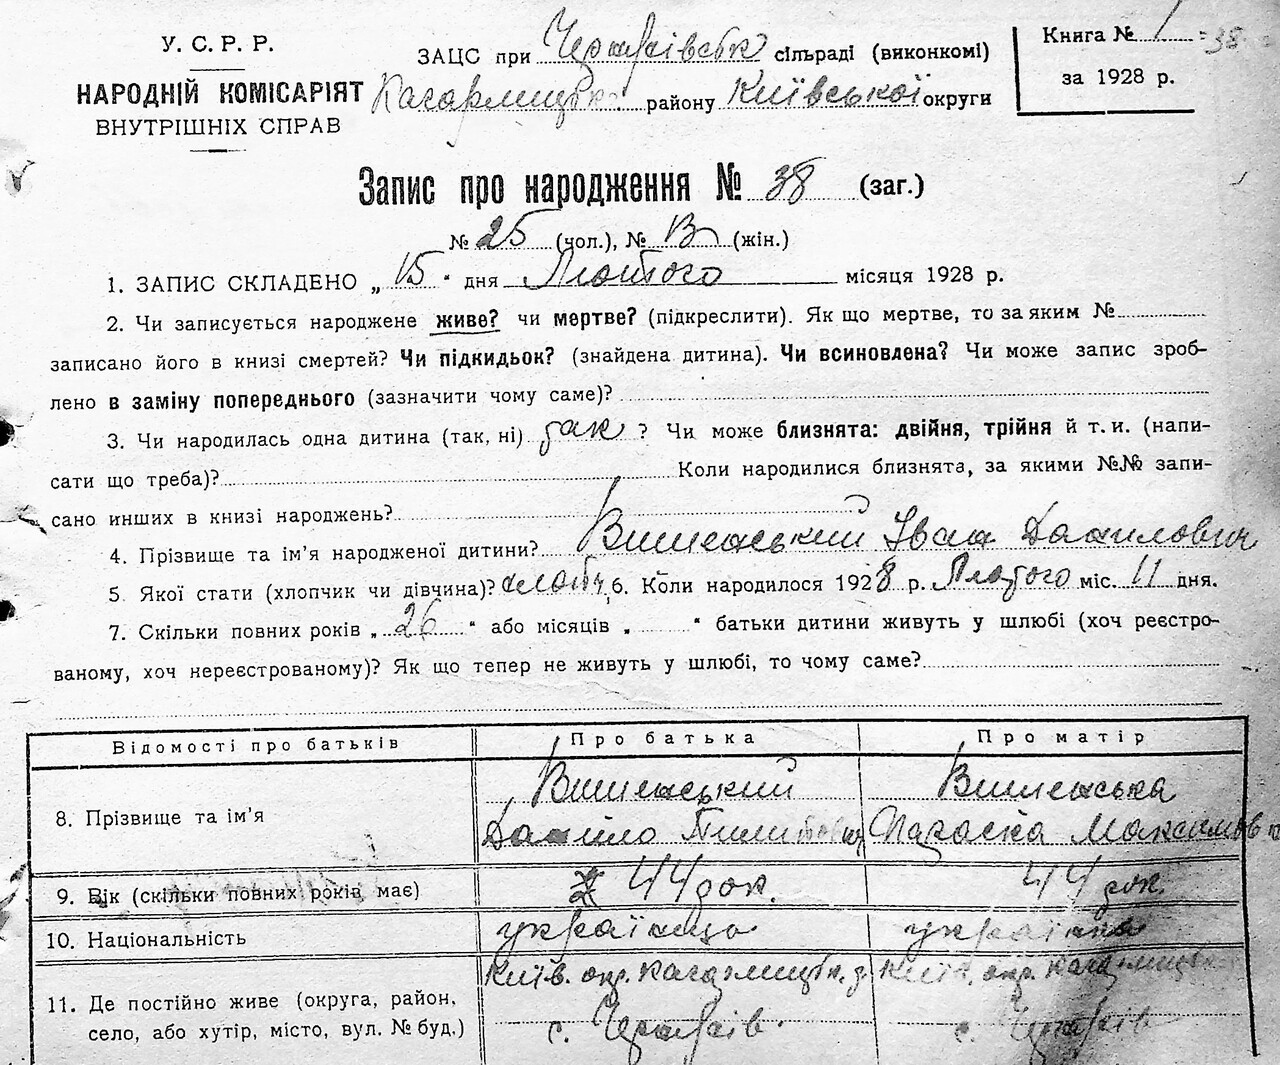 У. С. Р. Р.
НАРОДНІЙ КОМІСАРІЯТ
ВНУТРІШНІХ СПРАВ
ЗАЦС при сільраді (виконкомі)
Кагарлицьк. району Київської округи
Книга № 1 38
за 1928 р.
Запис про народження № 38 (заг.)
№ 25 (чол.), № (жін.)
1. ЗАПИС СКЛАДЕНО „ 15 “ дня Лютого місяця 1928 р.
2. Чи записується народжене живе? чи мертве? (підкреслити). Як що мертве, то за яким №
записано його в книзі смертей? Чи підкидьок? (знайдена дитина). Чи всиновлена? Чи може запис зроб-
лено в заміну попереднього (зазначити чому саме)?
3. Чи народилась одна дитина (так, ні) так ? Чи може близнята: двійня, трійня й т. и. (напи-
сати що треба)? Коли народилися близнята, за якими №№ запи-
сано инших в книзі народжень?
4. Прізвище та ім’я народженої дитини? Вишенський Іван Данилович
5. Якої стати (хлопчик чи дівчина)? хлопч 6. Коли народилося 1928 р. Лютого міс. 11 дня.
7. Скільки повних років „ 26 “ або місяців „ “ батьки дитини живуть у шлюбі (хоч реєстро-
ваному, хоч нереєстрованому)? Як що тепер не живуть у шлюбі, то чому саме?
Відомості про батьків Про батька Про матір
8. Прізвище та ім’я Вишенський Вишенська
Данило Пилипович Параска Максимов
9. Вік (скільки повних років має) 44 рок. 44 рок.
10. Національність українцв українка
11. Де постійно живе (округа, район, Київ. окр. Кагарлицьк. р. Київ. окр. Кагарлицьк
село, або хутір, місто, вул. № буд.) с. с.